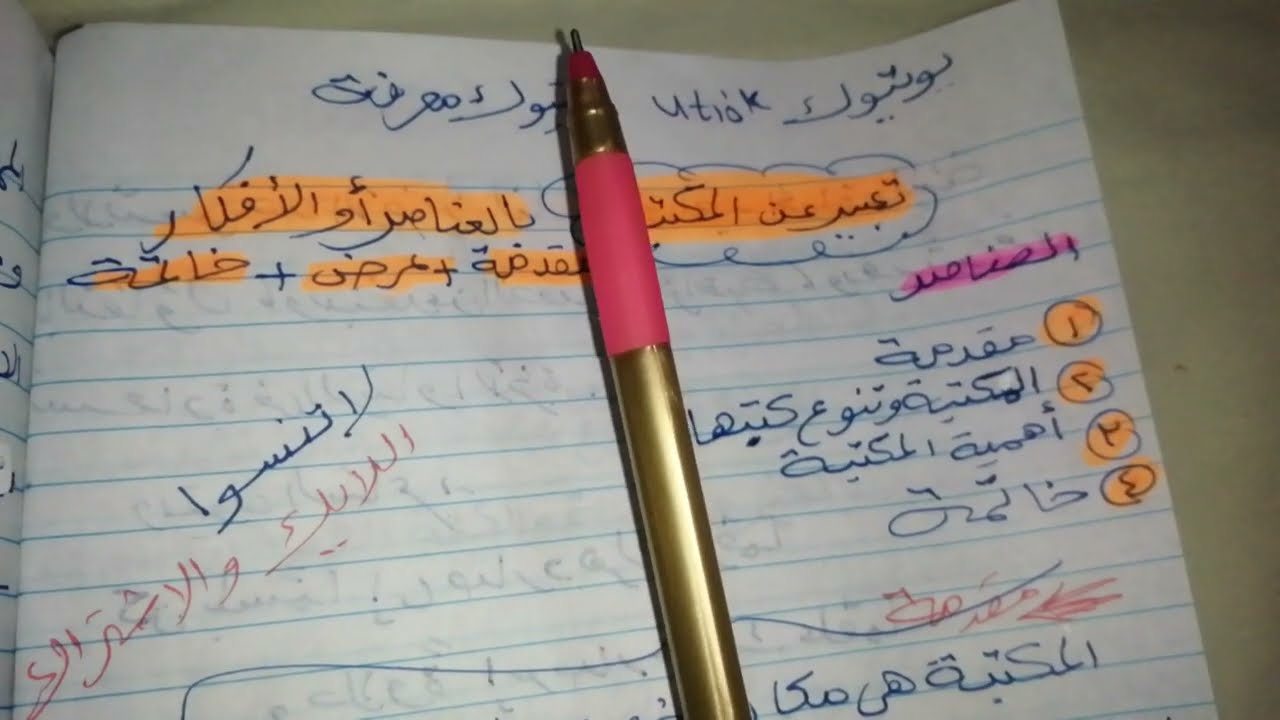 يوتيوك utiok يتوك معرفة
تعبير عن المكتبة بالعناصر أو الأفكار
مقدمة + عرض + خاتمة
العناصر
١ مقدمة
٢ المكتبة وتنوع كتبها
٣ أهمية المكتبة
٤ خاتمة
لا تنسوا
اللايك والاشتراك
مقدمة
المكتبة هى مكا